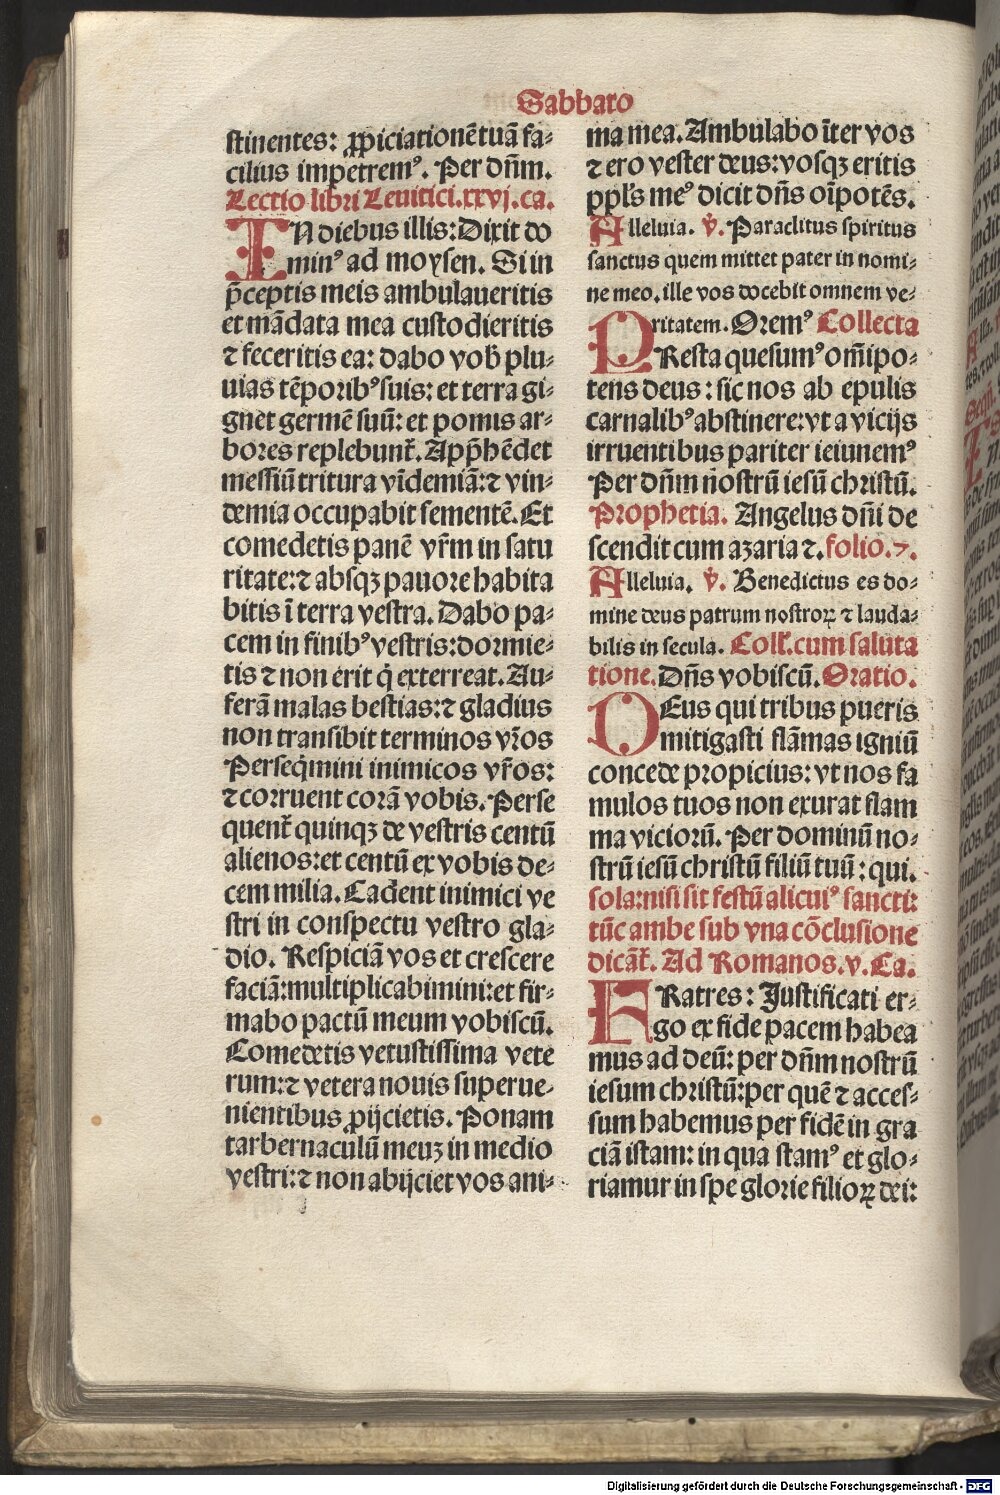 Sabbato
stinentes: ꝓpiciationē tuā fa⸗
cilius impetremꝰ. Per dn̄m.
Lectio libri Leuitici.xxvj.ca.
IN diebus illis: Dixit do
minꝰ ad moysen. Si in
p̄ceptis meis ambulaueritis
et mādata mea custodieritis
⁊ feceritis ea: dabo vob̄ plu⸗
uias tēporibꝰ suis: et terra gi⸗
gnet germē suū: et pomis ar⸗
bores replebunt̄. App̄hēdet
messiū tritura vīdemiā: ⁊ vin⸗
demia occupabit sementē. Et
comedetis panē vr̄m in satu
ritate: ⁊ absqꝫ pauore habita
bitis ī terra vestra. Dabo pa⸗
cem in finibꝰ vestris: dormie⸗
tis ⁊ non erit q̇ exterreat. Au⸗
ferā malas bestias: ⁊ gladius
non transibit terminos vr̄os
Perseq̄mini inimicos vr̄os:
⁊ corruent corā vobis. Perse
quent̄ quinqꝫ de vestris centū
alienos: et centū ex vobis de⸗
cem milia. Cadent inimici ve
stri in conspectu vestro gla⸗
dio. Respiciā vos et crescere
faciā: multiplicabimini: et fir⸗
mabo pactū meum vobiscū.
Comedetis vetustissima vete
rum: ⁊ vetera nouis superue⸗
nientibus ꝓijcietis. Ponam
tarbernaculū meuꝫ in medio
vestri: ⁊ non abijciet vos ani⸗
ma mea. Ambulabo īter vos
⁊ ero vester deus: vosqꝫ eritis
ppl̄s meꝰ dicit dn̄s oīpotēs.
Alleluia. v̄. Paraclitus spiritus
sanctus quem mittet pater in nomi⸗
ne meo. ille vos docebit omnem ve⸗
ritatem. Oremꝰ Collecta
PResta quesumꝰ om̄ipo⸗
tens deus: sic nos ab epulis
carnalibꝰ abstinere: vt a vicijs
irruentibus pariter ieiunemꝰ
Per dn̄m nostrū iesū christū.
Prophetia. Angelus dn̄i de
scendit cum azaria ⁊. folio.7.
Alleluia. v̄. Benedictus es do⸗
mine deus patrum nostroꝝ ⁊ lauda⸗
bilis in secula. Coll̄. cum saluta
tione. Dn̄s vobiscū. Oratio.
DEus qui tribus pueris
mitigasti flāmas igniū
concede propicius: vt nos fa
mulos tuos non exurat flam
ma viciorū. Per dominū no⸗
strū iesū christū filiū tuū: qui.
sola: nisi sit festū alicuiꝰ sancti:
tūc ambe sub vna cōclusione
dicāt̄. Ad Romanos.v. Ca.
FRatres: Justificati er⸗
go ex fide pacem habea
mus ad deū: per dn̄m nostrū
iesum christū: per quē ⁊ acces⸗
sum habemus per fidē in gra
ciā istam: in qua stamꝰ et glo⸗
riamur in spe glorie filioꝝ dei:
Digitalisierung gefördert durch die Deutsche Forschungsgemeinschaft - DFG